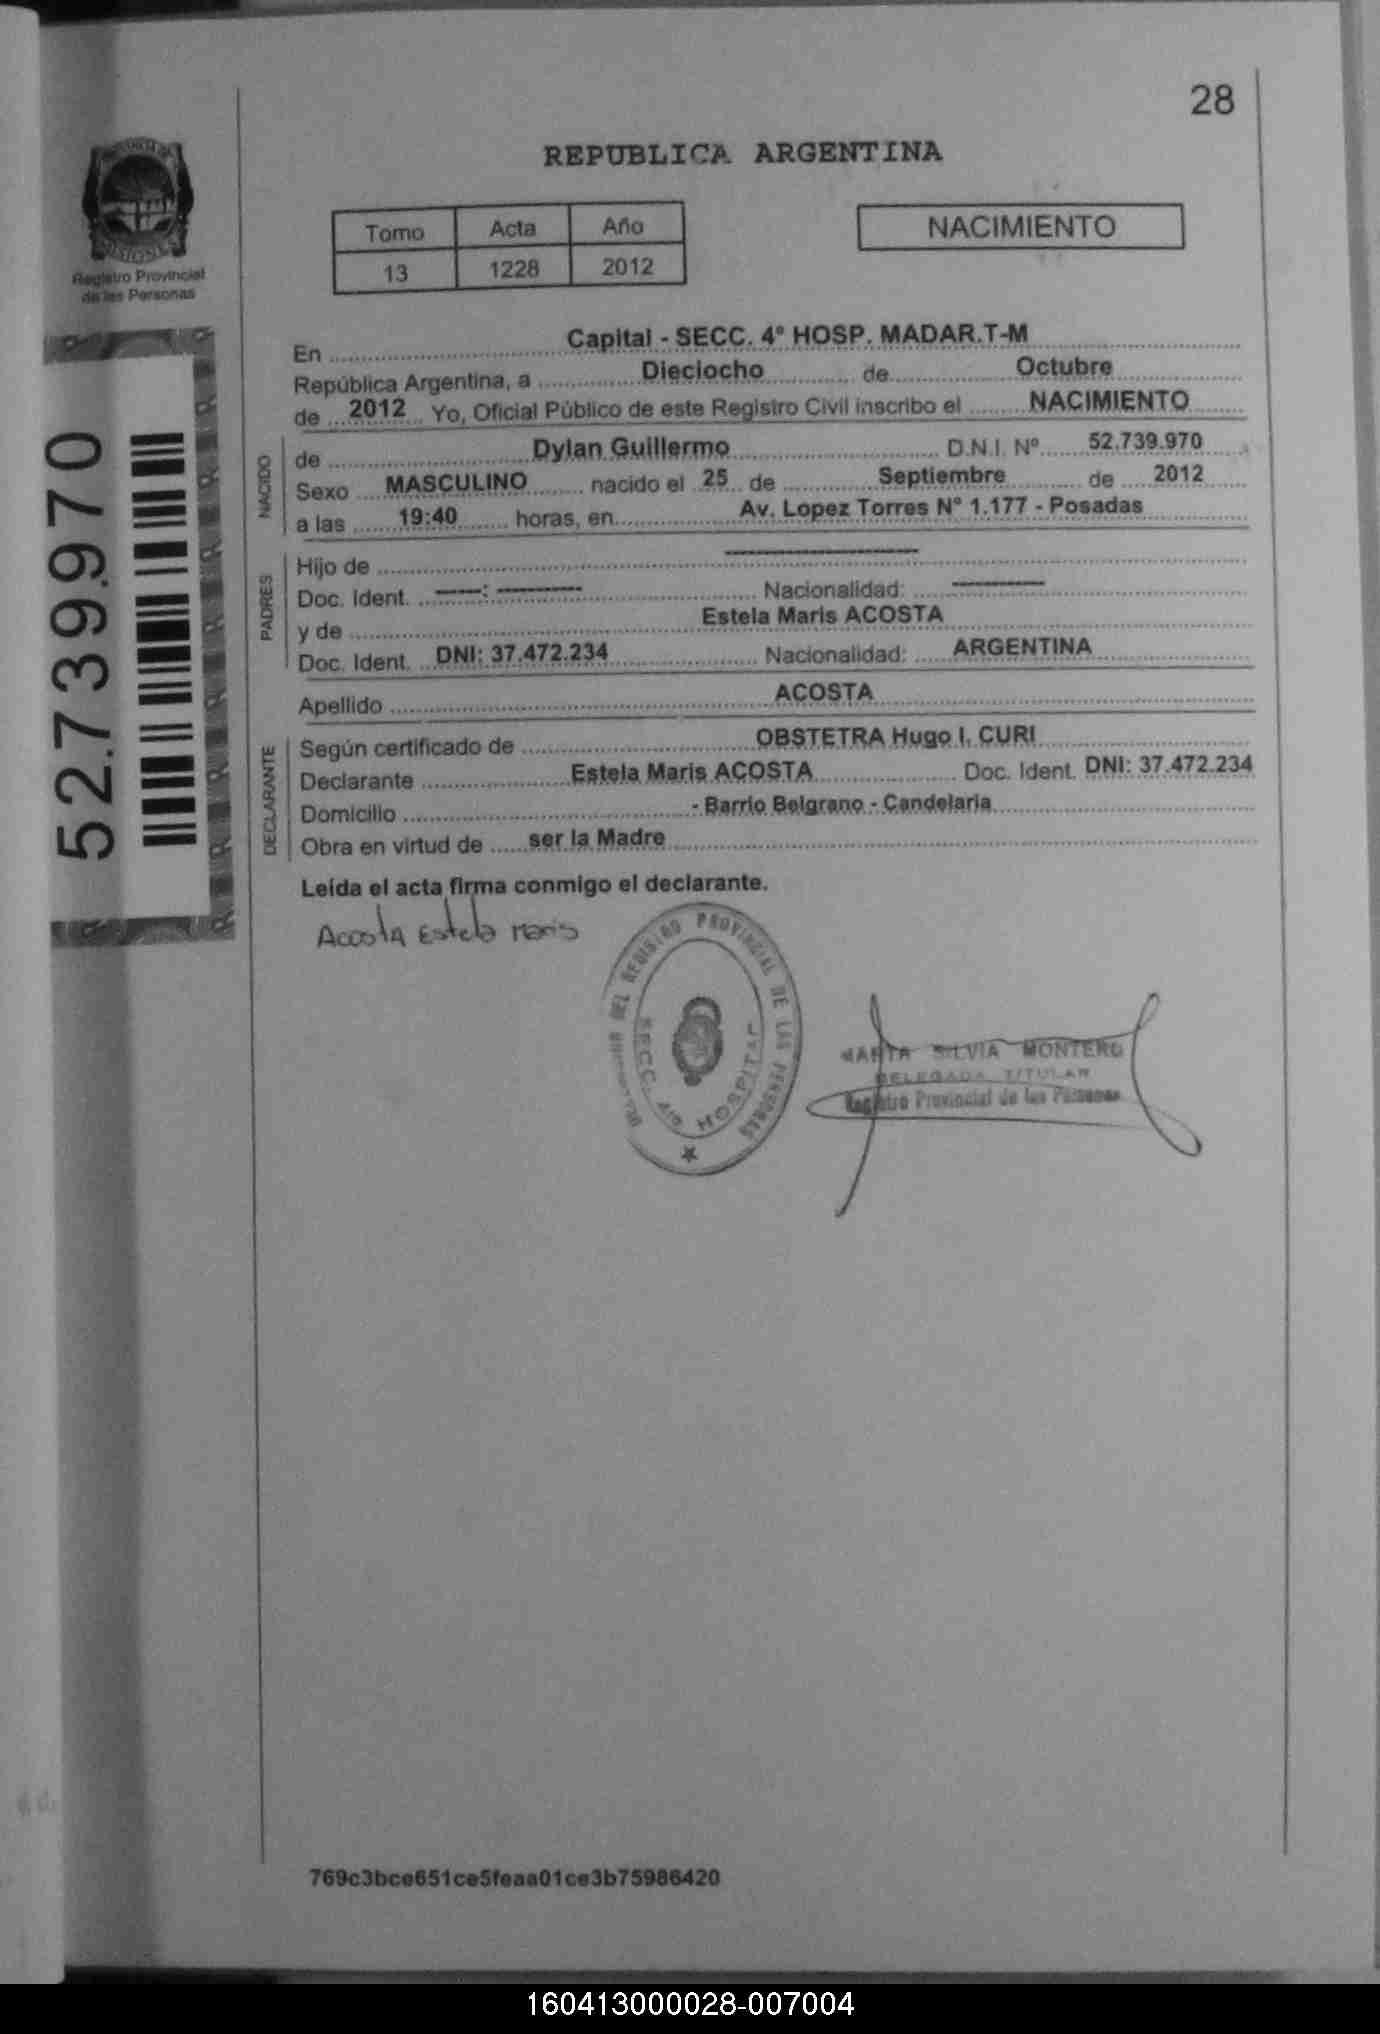 28
PROVINCIA DE
MISIONES
Registro Provincial
de las Personas
52.739.970
REPUBLICA ARGENTINA
Tomo Acta Año
13 1228 2012
NACIMIENTO
En Capital - SECC. 4° HOSP. MADAR.T-M
República Argentina, a Dieciocho de Octubre
de 2012 Yo, Oficial Público de este Registro Civil inscribo el NACIMIENTO
NACIDO
de Dylan Guillermo D.N.I. Nº 52.739.970
Sexo MASCULINO nacido el 25 de Septiembre de 2012
a las 19:40 horas, en Av. Lopez Torres N° 1.177 - Posadas
PADRES
Hijo de ----------
Doc. Ident. ----: ---------- Nacionalidad: ----------
y de Estela Maris ACOSTA
Doc. Ident. DNI: 37.472.234 Nacionalidad: ARGENTINA
Apellido ACOSTA
DECLARANTE
Según certificado de OBSTETRA Hugo I. CURI
Declarante Estela Maris ACOSTA Doc. Ident. DNI: 37.472.234
Domicilio - Barrio Belgrano - Candelaria
Obra en virtud de ser la Madre
Leída el acta firma conmigo el declarante.
Acosta Estela Maris
DEL REGISTRO PROVINCIAL DE LAS PERSONAS
SECC. 4ta HOSPITAL
MARTA SILVIA MONTERO
DELEGADA TITULAR
Registro Provincial de las Personas
769c3bce651ce5feaa01ce3b75986420
160413000028-007004